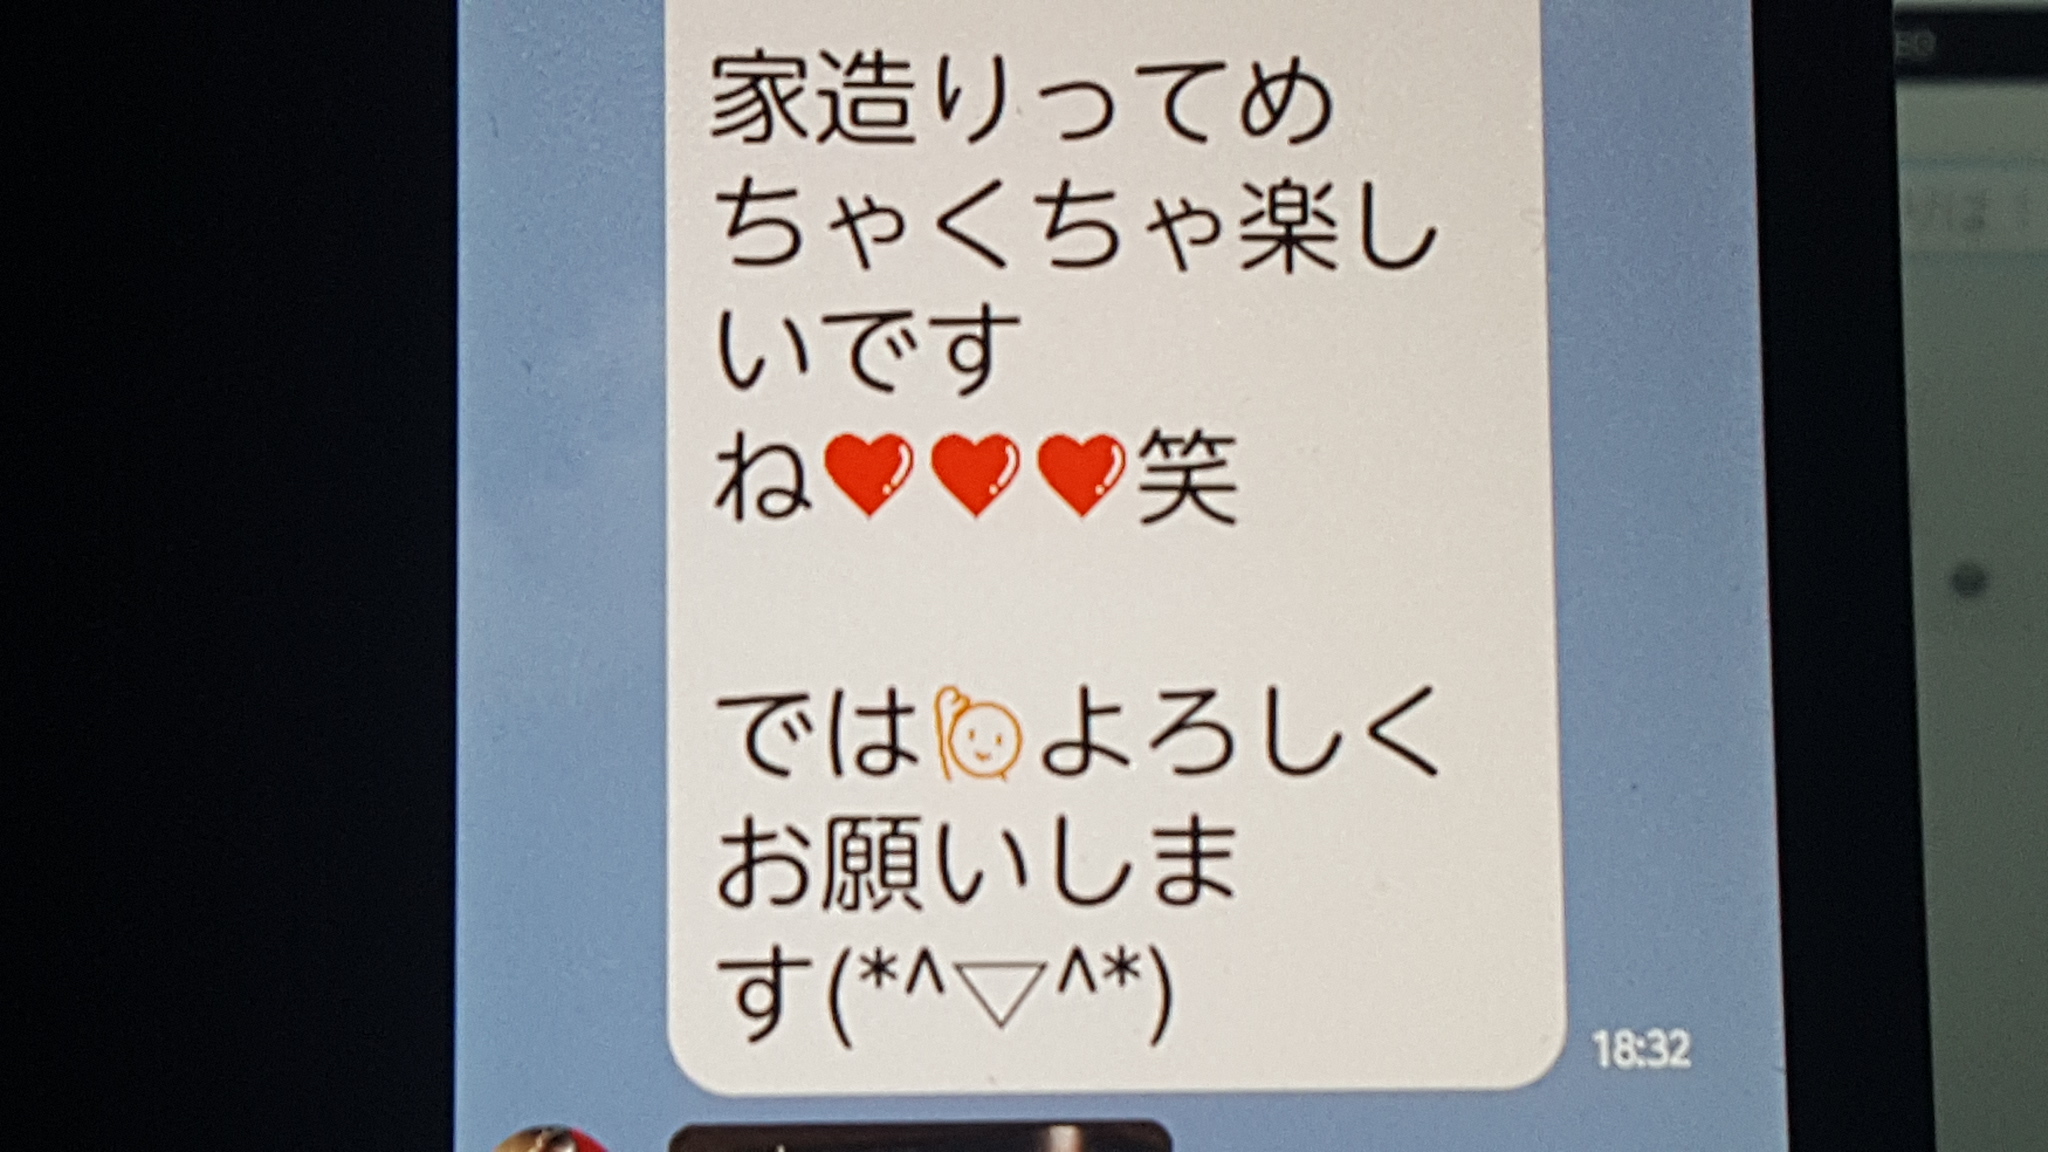 家造りってめ
ちゃくちゃ楽し
いです
ね❤❤❤笑
では🙋よろしく
お願いしま
す(*^▽^*)
18:32